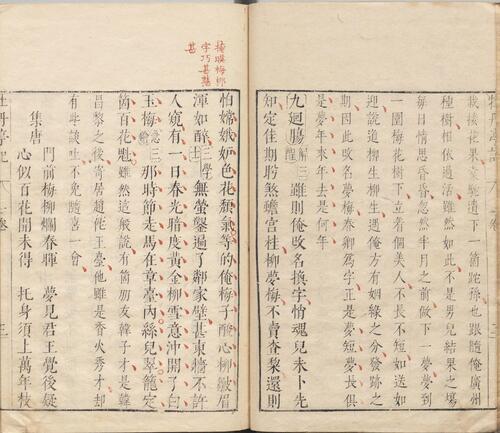 栽接花果家兄遺下一箇跎孫也跟隨俺廣州
種樹相依過活雖然如此不是男兒結果之場
每日情思昏昏忽然半月之前做下一夢夢到
一園梅花樹下立着個美人不長不短如送如
迎說道柳生柳生遇俺方有姻緣之分發跡之
期因此改名夢梅春卿為字正是夢短夢長俱
是夢年來年去是何年
九迴腸解三酲雖則俺改名換字悄魂兒未卜先
知定佳期盼煞蟾宮桂柳夢梅不賣查黎還則
怕嫦娥妬色花頹氣等的俺梅子酸心柳皺眉
渾如醉三學士無螢鑿遍了鄰家壁甚東牆不許
人窺有一日春光暗度黃金柳雪意沖開了白
玉梅急三鎗那時節走馬在章臺內絲兒翠籠定
箇百花魁雖然這般說有箇朋友韓子才是韓
昌黎之後寄居趙佗王臺他雖是香火秀才却
有些談吐不免隨喜一會
集唐
門前梅柳爛春暉 夢見君王覺後疑
心似百花開未得 托身須上萬年枝
牡丹亭記
三
接暎梅柳
字巧甚熱
甚